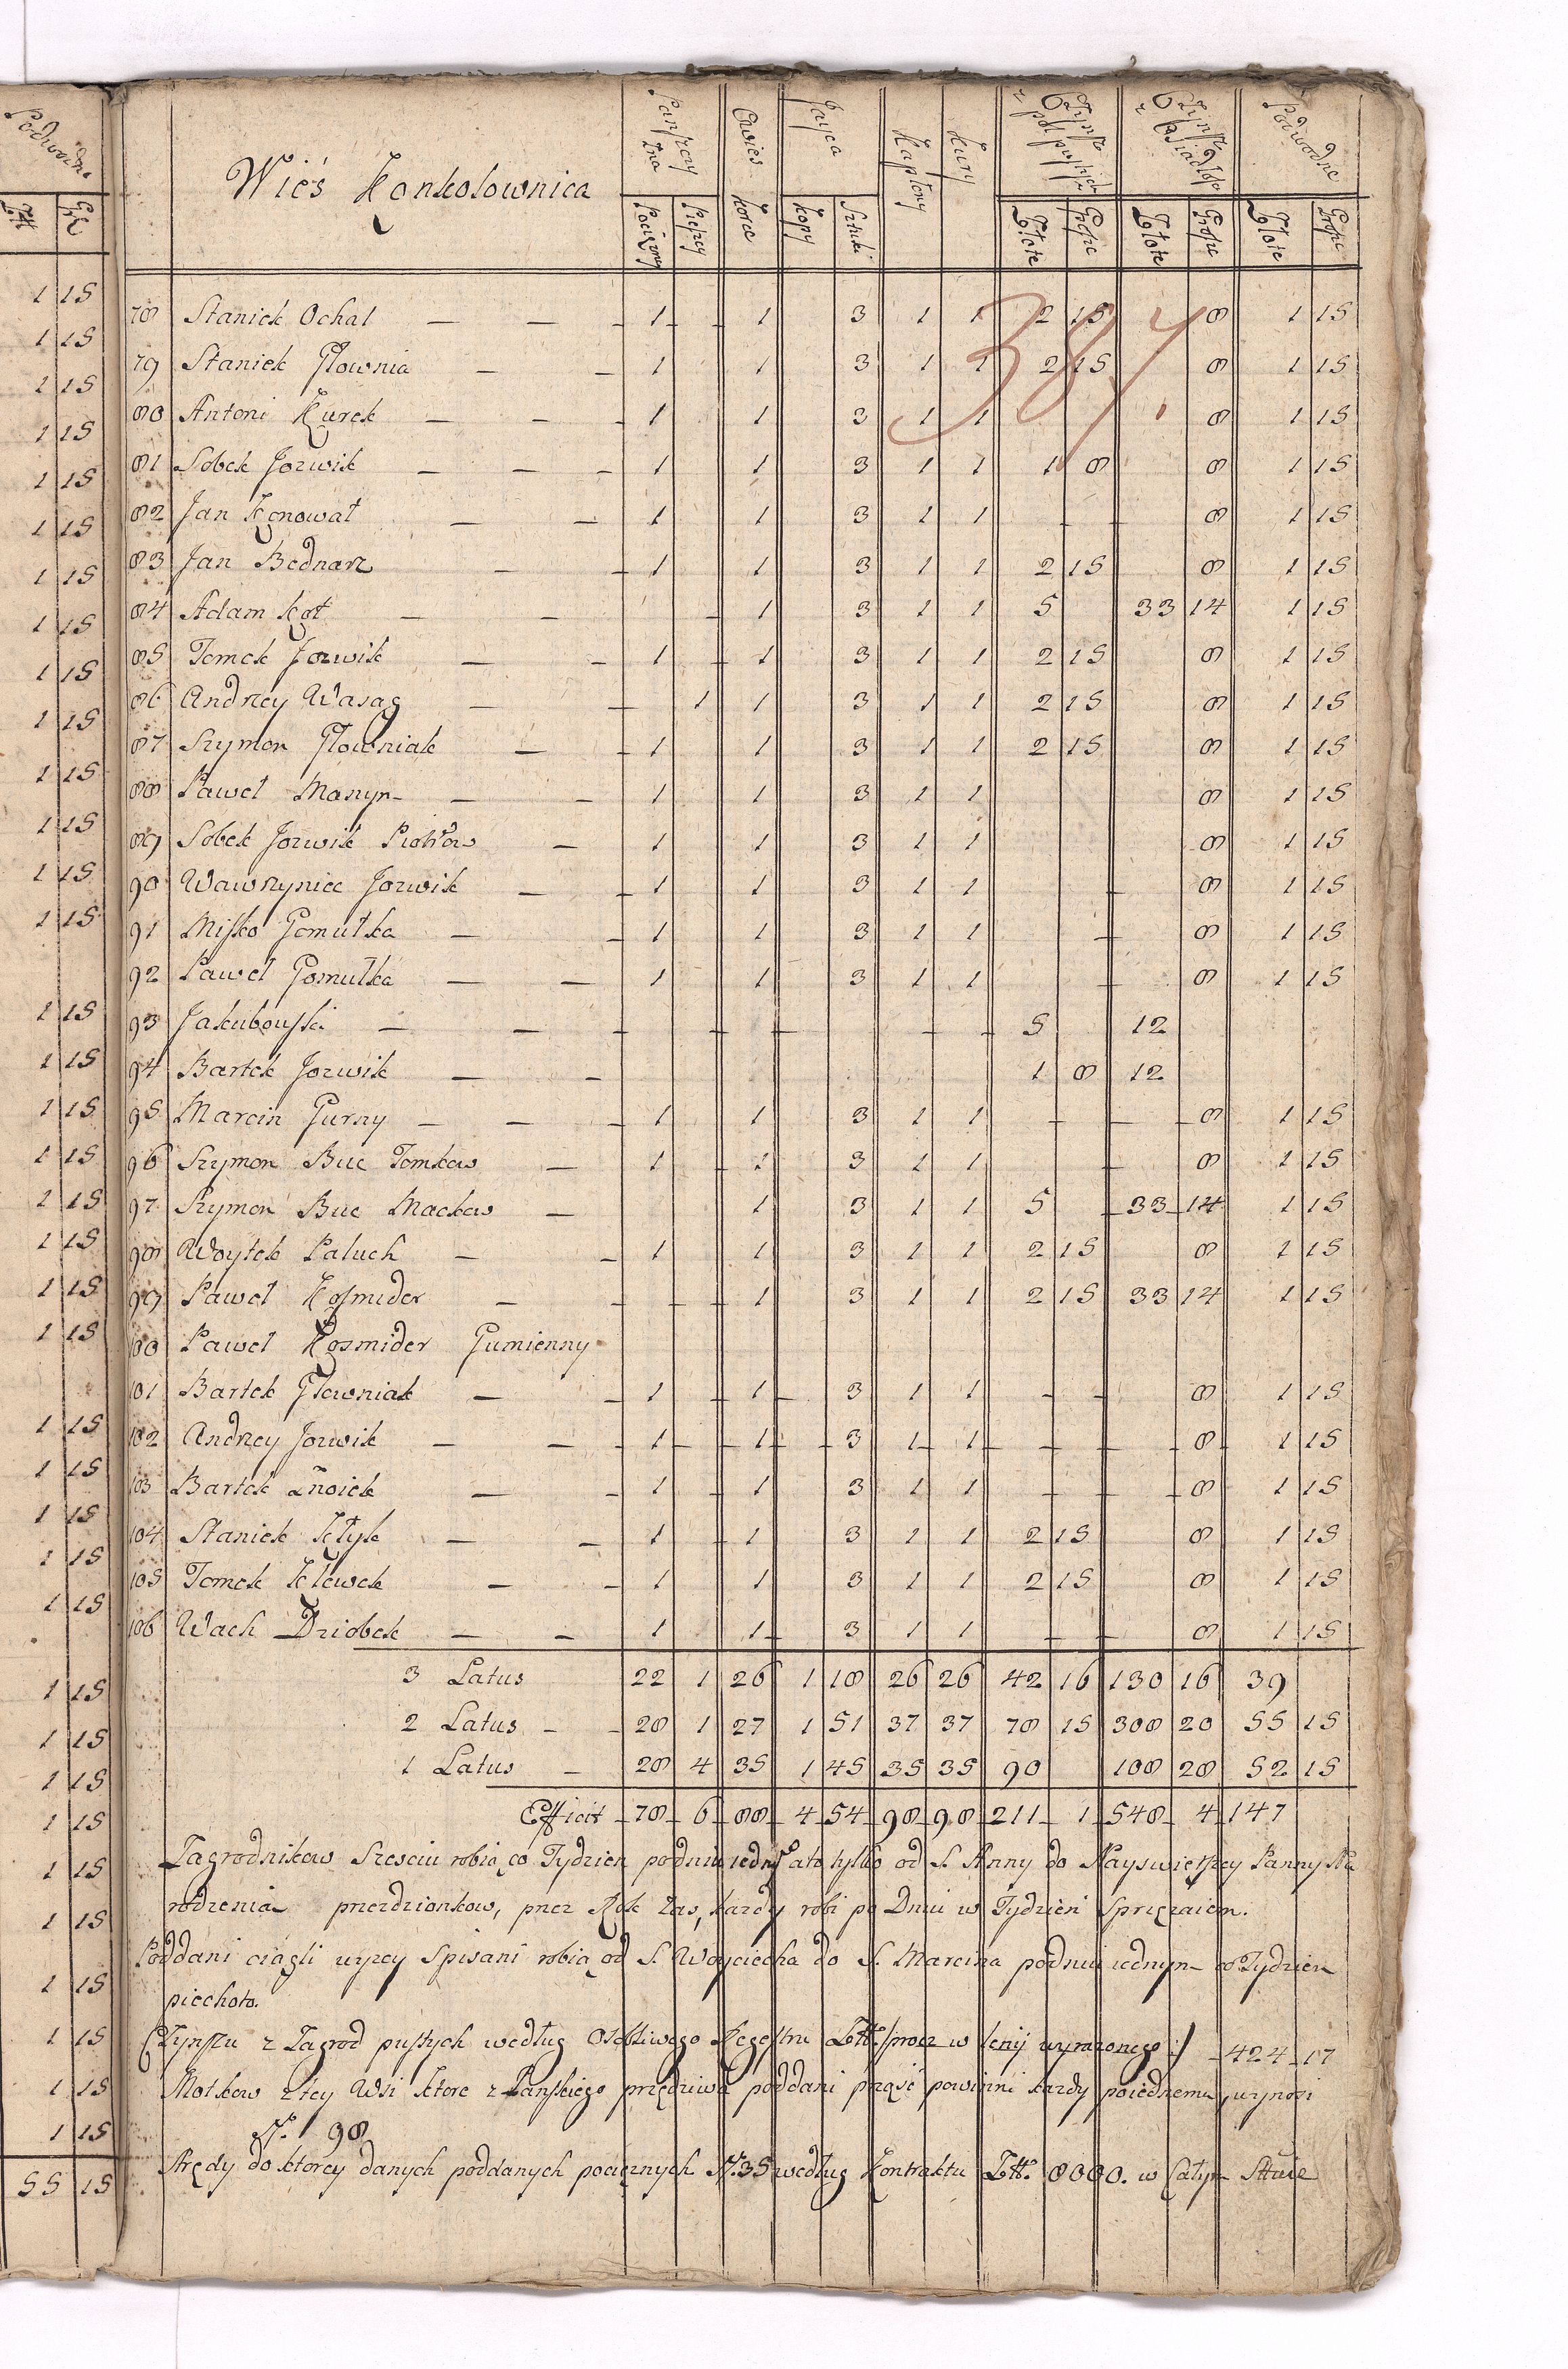 Podwodne
Zł Gr
1 15
1 15
1 15
1 15
1 15
1 15
1 15
1 15
1 15
1 15
1 15
1 15
1 15
1 15
1 15
1 15
1 15
1 15
1 15
1 15
1 15
1 15
1 15
1 15
1 15
1 15
1 15
1 15
1 15
1 15
1 15
1 15
1 15
1 15
1 15
1 15
1 15
55 15
Wieś Konkolownica
Panszczyzna Owies Jayca Kapłony Kury Czynsz z pól pustych Czynsz z Osiadłosc Podwodne
Pociężny Pieszy Korce Kopy Sztuki Złote Grosze Złote Grosze Złote Grosze
387.
78 Staniek Ochal — — 1 1 3 1 1 2 15 8 1 15
79 Staniek Głownia — — 1 1 3 1 1 2 15 8 1 15
80 Antoni Kurek — — 1 1 3 1 1 8 1 15
81 Sobek Jozwik — — 1 1 3 1 1 1 8 8 1 15
82 Jan Konował — — 1 1 3 1 1 8 1 15
83 Jan Bednarz — — 1 1 3 1 1 2 15 8 1 15
84 Adam Kot — — 1 3 1 1 5 33 14 1 15
85 Tomek Jozwik — — 1 1 3 1 1 2 15 8 1 15
86 Andrzey Wasag — — 1 1 3 1 1 2 15 8 1 15
87 Szymon Głowniak — — 1 1 3 1 1 2 15 8 1 15
88 Paweł Manyn — — 1 1 3 1 1 8 1 15
89 Sobek Jozwik Piotrow — 1 1 3 1 1 8 1 15
90 Wawrzyniec Jozwik — — 1 1 3 1 1 8 1 15
91 Miśko Gomułka — — 1 1 3 1 1 8 1 15
92 Paweł Gomułka — — 1 1 3 1 1 8 1 15
93 Jakubowski — — 5 12
94 Bartek Jozwik — — 1 8 12
95 Marcin Gurny — — 1 1 3 1 1 8 1 15
96 Szymon Buc Tomkow — 1 1 3 1 1 8 1 15
97 Szymon Buc Mackow — 1 3 1 1 5 33 14 1 15
98 Woytek Paluch — — 1 1 3 1 1 2 15 8 1 15
99 Paweł Kosmider — — 1 3 1 1 2 15 33 14 1 15
100 Paweł Kosmider Gumienny
101 Bartek Głowniak — — 1 1 3 1 1 8 1 15
102 Andrzey Jozwik — — 1 1 3 1 1 8 1 15
103 Bartek — — 1 1 3 1 1 8 1 15
104 Staniek Kłyk — — 1 1 3 1 1 2 15 8 1 15
105 Tomek — — 1 1 3 1 1 2 15 8 1 15
106 Wach Dziobek — — 1 1 3 1 1 8 1 15
3 Latus 22 1 26 1 18 26 26 42 16 130 16 39
2 Latus — 28 1 27 1 51 37 37 78 15 308 20 55 15
1 Latus — 28 4 35 1 45 35 35 90 108 28 52 15
Efficit 78 6 88 4 54 98 98 211 1 548 4 147
Zagrodnikow Szesciu robią co Tydzien podniu iedny ato tylko od S. Anny do Nayswiętszey Panny Na
rodzenia przerdzionkow, przez Rok zas, kazdy robi po Dniu w Tydzień Sprzęzaiem.
Poddani ciągli wyzey Spisani robią od S. Woyciecha do S. Marcina podniu iednym co Tydzien
piechoto.
Czynszu z Zagrod pustych według Osobliwego Regestru procz w teniy wyrazonego :/ 424 17
Motkow z tey Wsi ktore z Panskiego przędziwa poddani prząść powinni kazdy poiednemu, wynosi
N. 98
do ktorey danych poddanych pocięznych N. 35 według Kontraktu 8000. w Całym